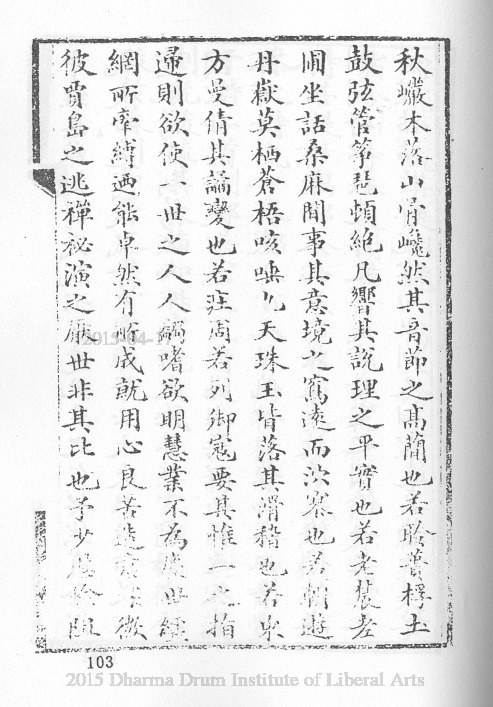 秋巖木落山骨巉然其音節之高簡也若聆蕢桴土
鼓弦管箏琶頓絕凡響其說理之平實也若老農老
圃坐話桑麻閒事其意境之寫遠而泬寥也若朝遊
丹嶽莫栖蒼梧咳唾九天珠玉皆落其滑稽也若東
方曼倩其譎變也若莊周若列御寇要其惟一之指
歸則欲使一世之人人蠲嗜欲明慧業不為度世經
網所牽縛迺能卓然有所成就用心良苦造微
彼賈島之逃禪秘演之厭世非其比也予少
103
2015-04-1
2015 Dharma Drum Institute of Liberal Arts